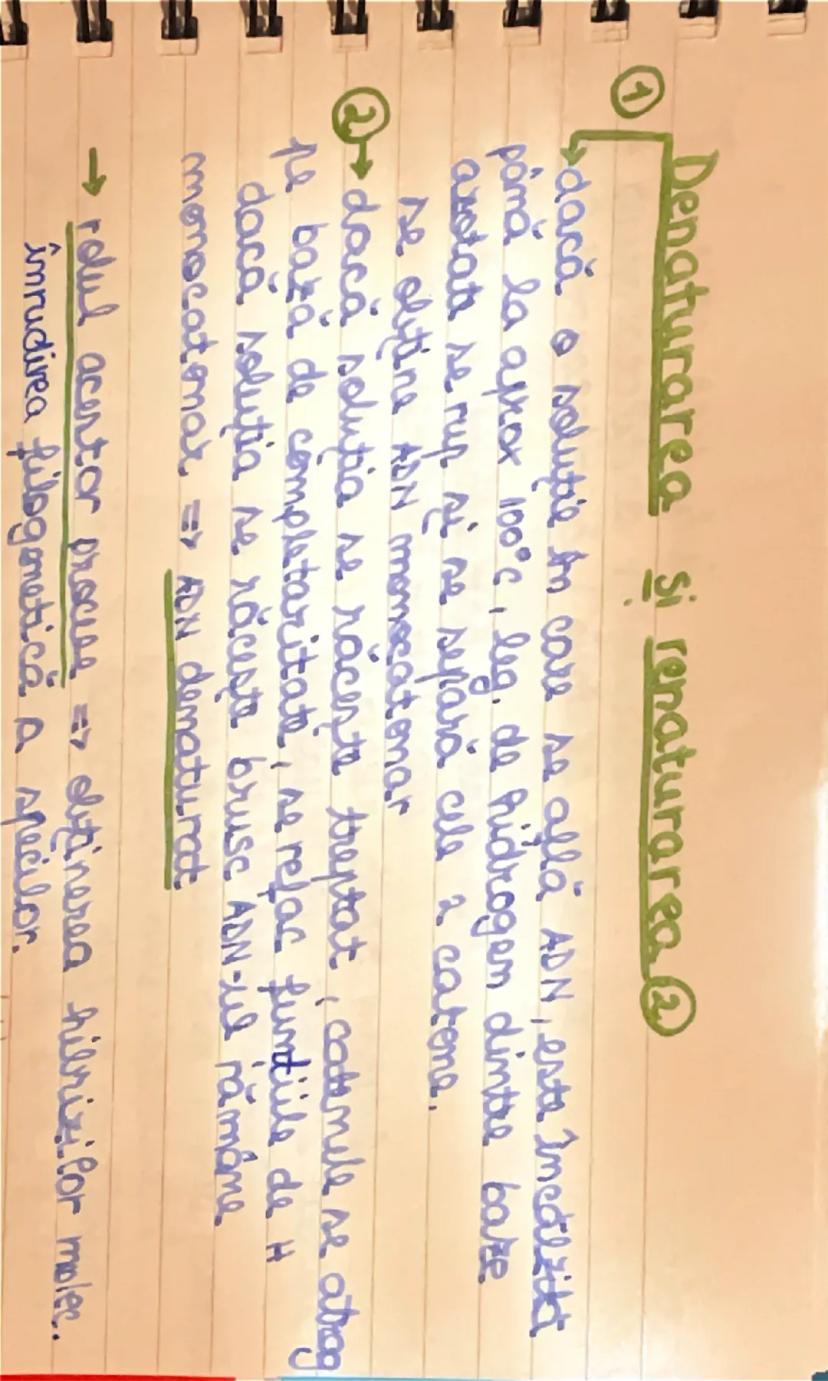 ① Denaturarea și renaturarea ②
→ dacă o soluție în care se află ADN, este încălzită
până la aprox 100°C, leg. de hidrogen dintre baze
azotate se rup și se separă cele 2 catene.
se obține ADN monocatenar
② → dacă soluția se răcește treptat, catenele se atrag
pe bază de completaritate, se refac funțiile de H
dacă soluția se răcește brusc ADN-ul rămâne
monocatenar => ADN denaturat
→ rolul acestor procese => obținerea hibrizilor molec.
înrudirea filogenetică a speciilor.